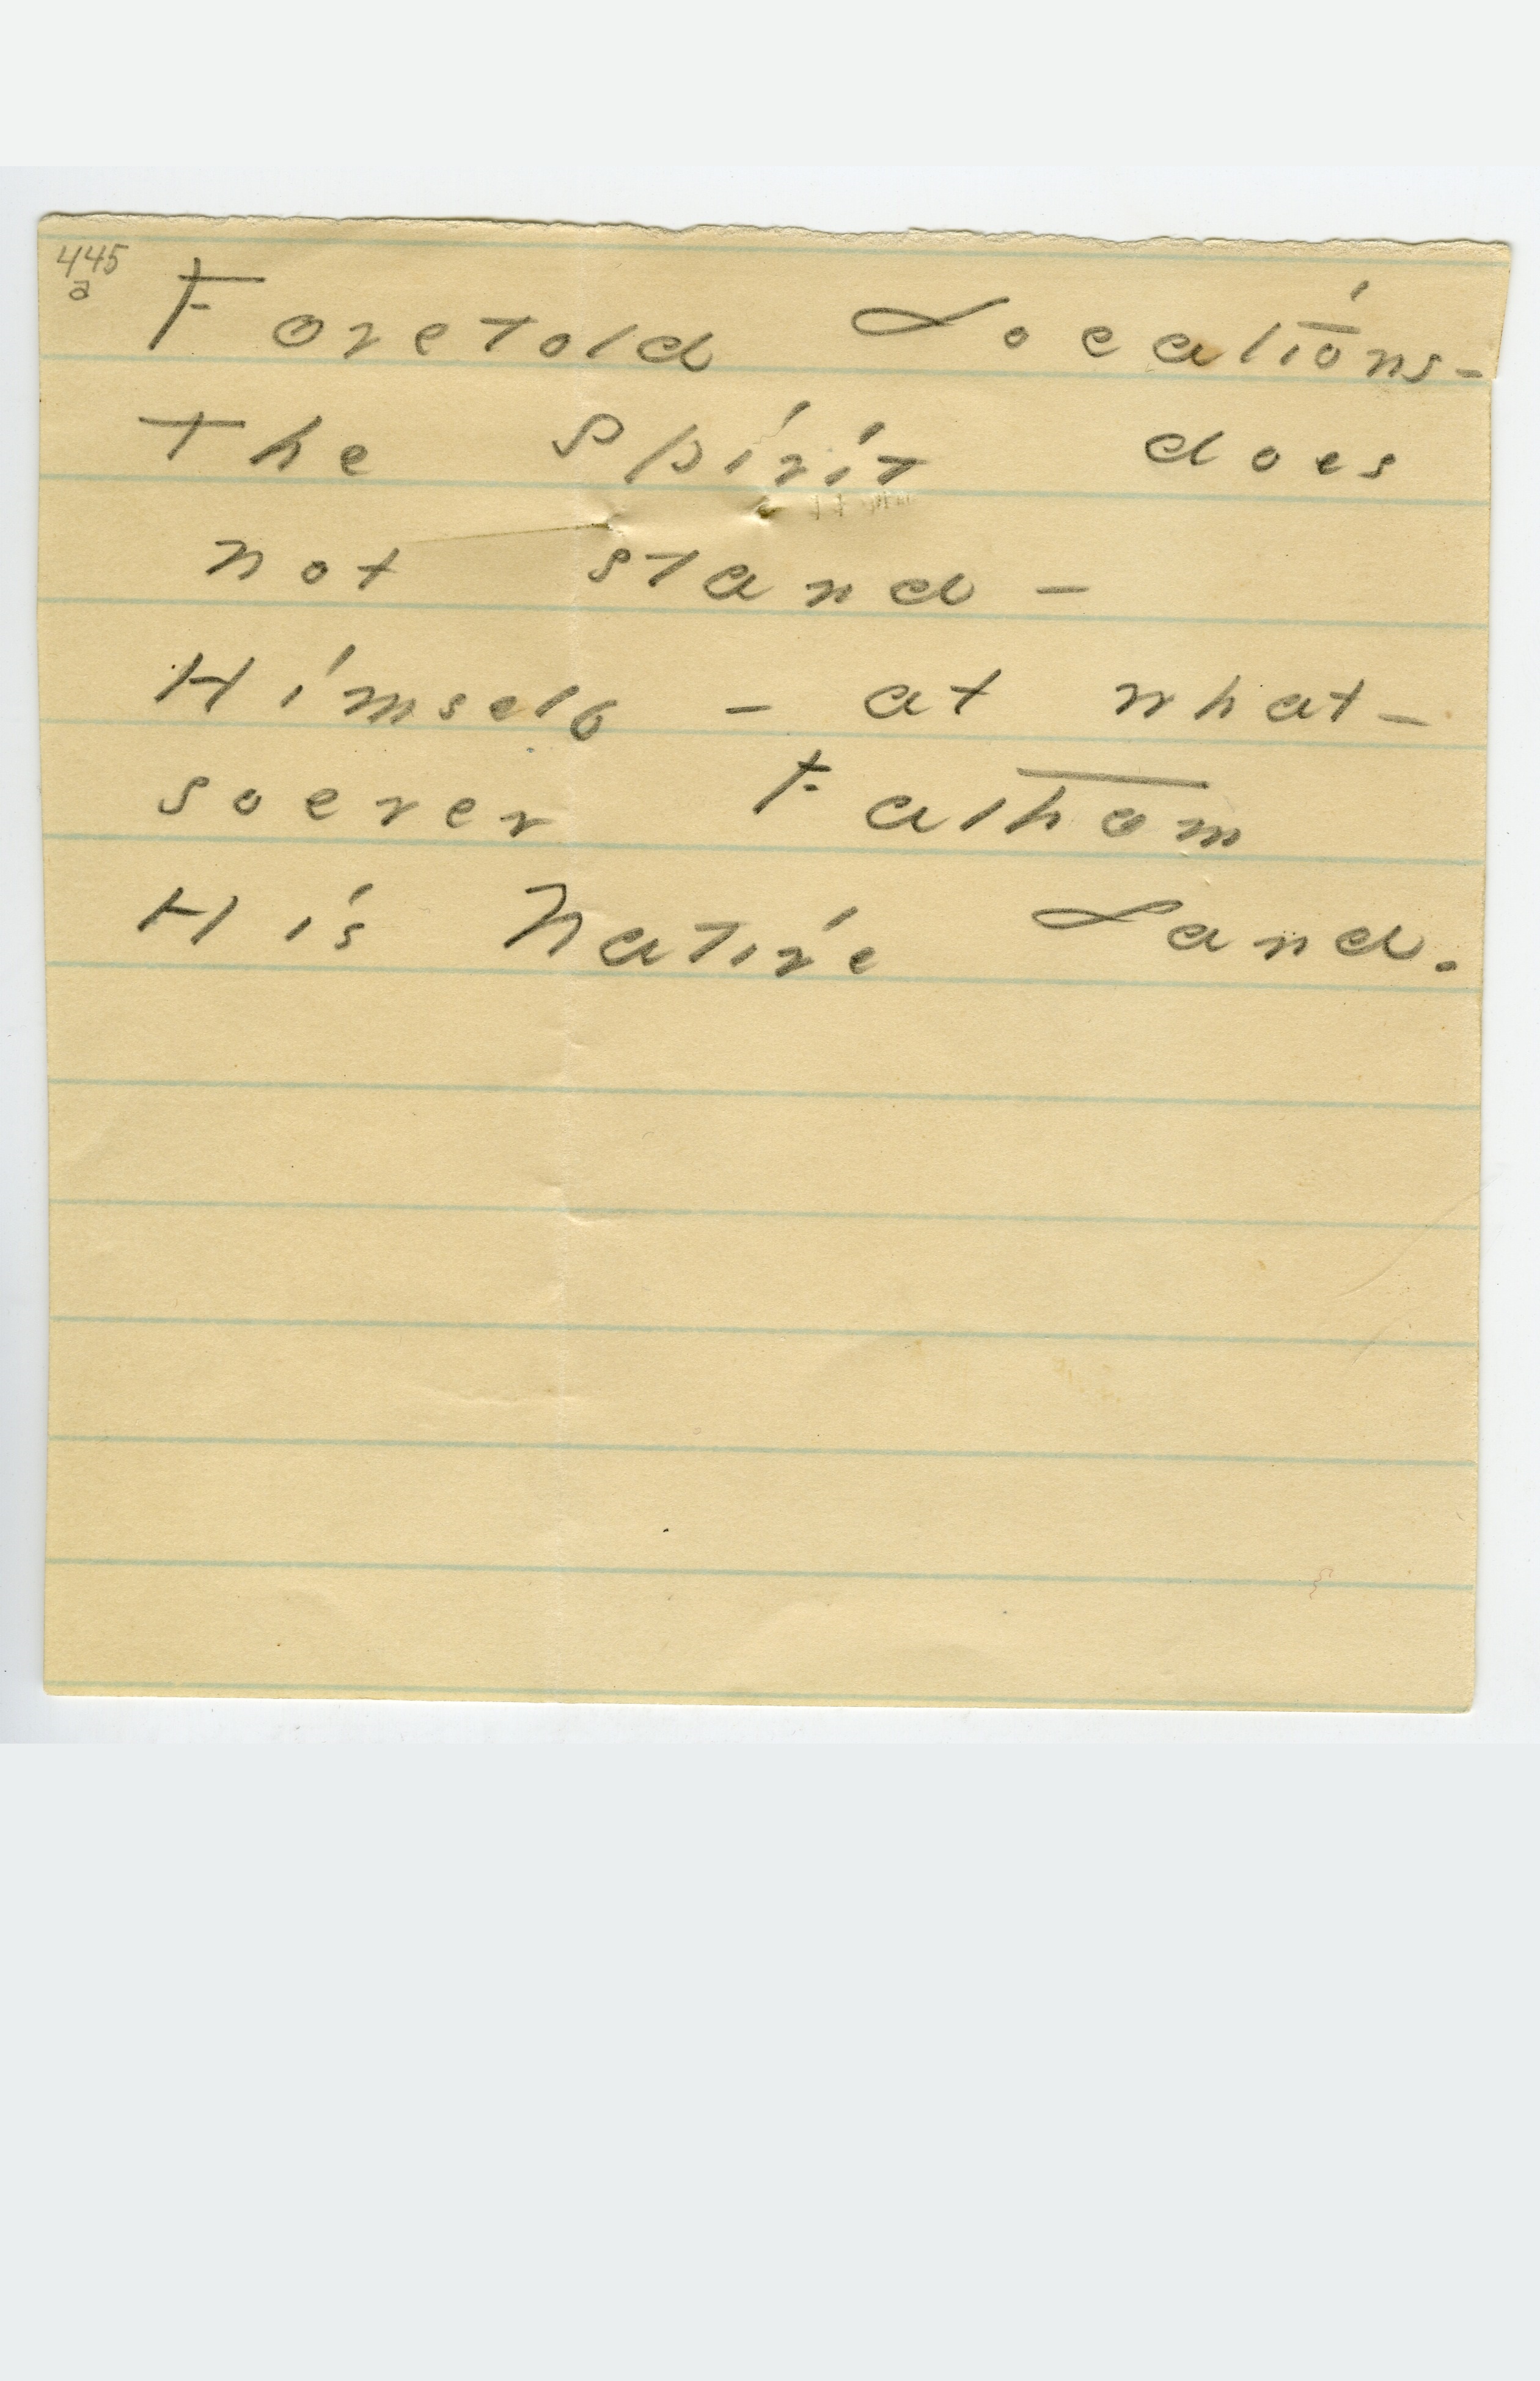 445
a
Foretold Locations-
The Spirit does
not stand -
Himself - at what-
soever Fathom
His Native Land.